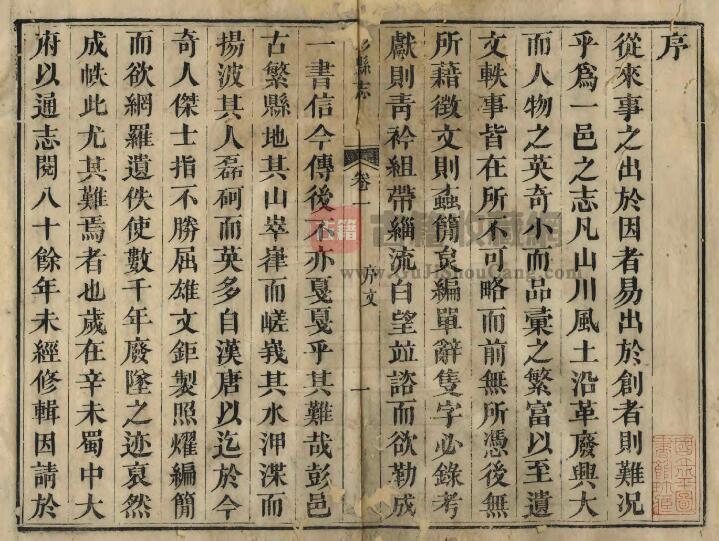 序
從來事之出於因者易出於創者則難況
乎爲一邑之志凡山川風土沿革廢興大
而人物之英奇小而品彙之繁富以至遺
文軼事皆在所不可略而前無所憑後無
所藉徵文則蟲簡裒編單辭隻字必錄考
獻則靑衿組帶緇流白望並諮而欲勒成
縣志 卷一 序文 一
一書信今傳後不亦戛戛乎其難哉彭邑
古繁縣地其山崒嵂而嵯峩其水浺渫而
揚波其人磊砢而英多自漢唐以迄於今
奇人傑士指不勝屈雄文鉅製照燿編簡
而欲網羅遺佚使數千年廢墜之迹裒然
成帙此尤其難焉者也歲在辛未蜀中大
府以通志閱八十餘年未經修輯因請於
古籍收藏網
www.GuJiShouCang.com